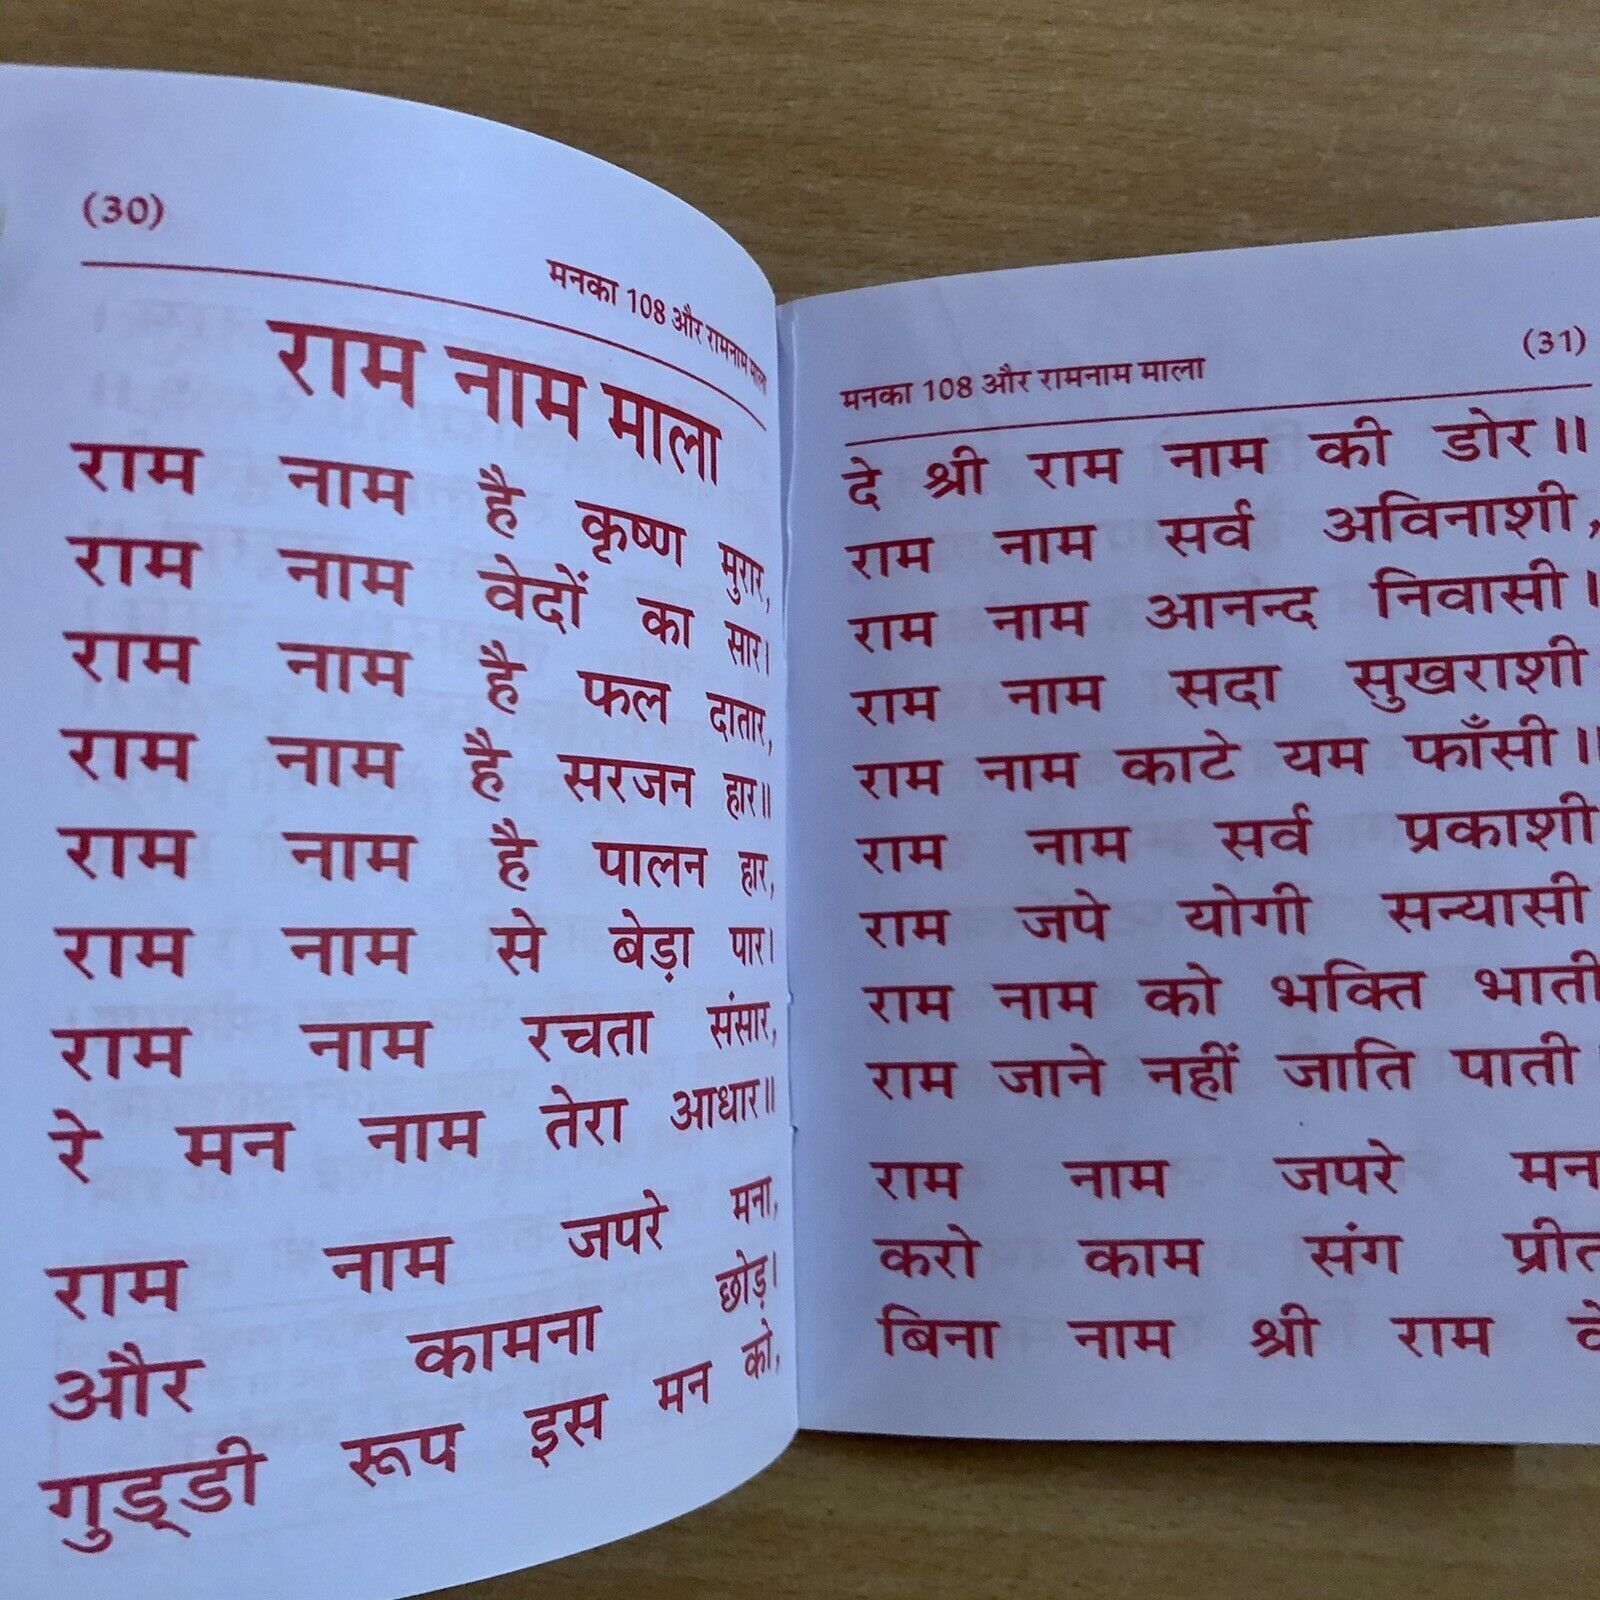 (30)
मनका 108 और रामनाम माला
राम नाम माला
राम नाम है कृष्ण मुरार,
राम नाम वेदों का सार।
राम नाम है फल दातार,
राम नाम है सरजन हार॥
राम नाम है पालन हार,
राम नाम से बेड़ा पार।
राम नाम रचता संसार,
रे मन नाम तेरा आधार॥
राम नाम जपरे मना,
और कामना छोड़।
गुड्डी रूप इस मन को,
(31)
मनका 108 और रामनाम माला
दे श्री राम नाम की डोर॥
राम नाम सर्व अविनाशी,
राम नाम आनन्द निवासी।
राम नाम सदा सुखराशी
राम नाम काटे यम फाँसी॥
राम नाम सर्व प्रकाशी
राम जपे योगी सन्यासी
राम नाम को भक्ति भाती
राम जाने नहीं जाति पाती
राम नाम जपरे मन
करो काम संग प्रीत
बिना नाम श्री राम